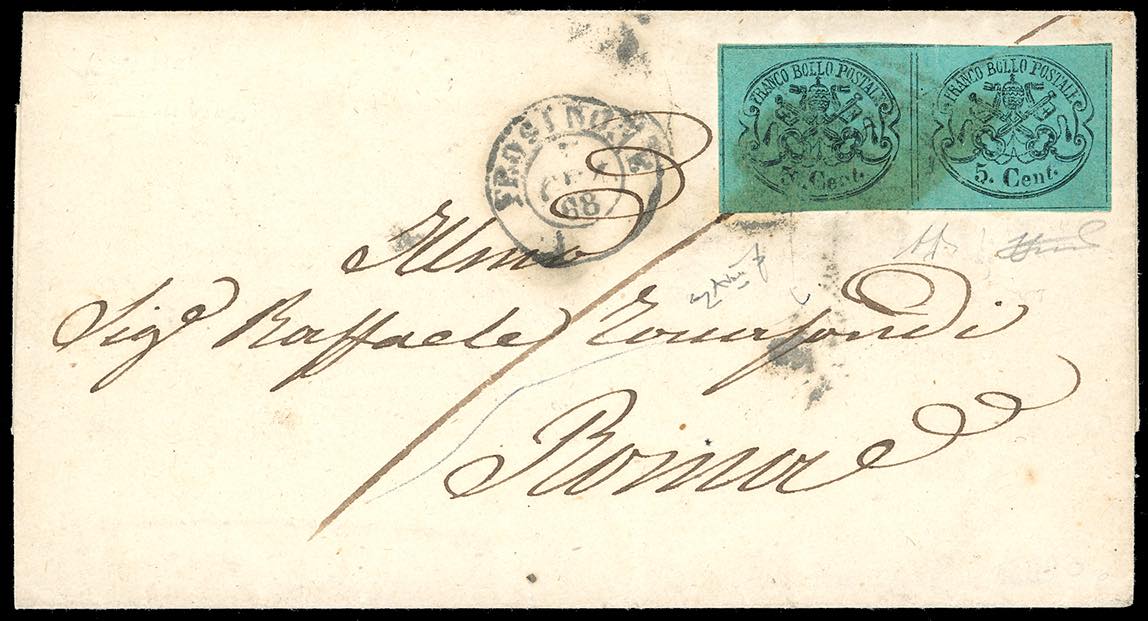 FRANCO BOLLO POSTALE
5. Cent.
FRANCO BOLLO POSTALE
5. Cent.
FROSINONE
68
Illmo
Sigr Raffaele
Roma